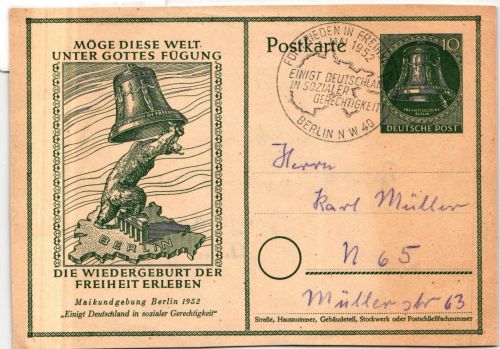 MÖGE DIESE WELT
UNTER GOTTES FÜGUNG
OF FREEDOM
BERLIN
DIE WIEDERGEBURT DER
FREIHEIT ERLEBEN
Maikundgebung Berlin 1952
„Einigt Deutschland in sozialer Gerechtigkeit"
Postkarte
FÜR FRIEDEN IN FREIHEIT
MAI 1952
EINIGT DEUTSCHLAND
IN SOZIALER
GERECHTIGKEIT
BERLIN NW 40
10
FREIHEITSGLOCKE
BERLIN
DEUTSCHE POST
Herrn
Karl Müller
N 65
Müllerstr 63
Straße, Hausnummer, Gebäudeteil, Stockwerk oder Postschließfachnummer